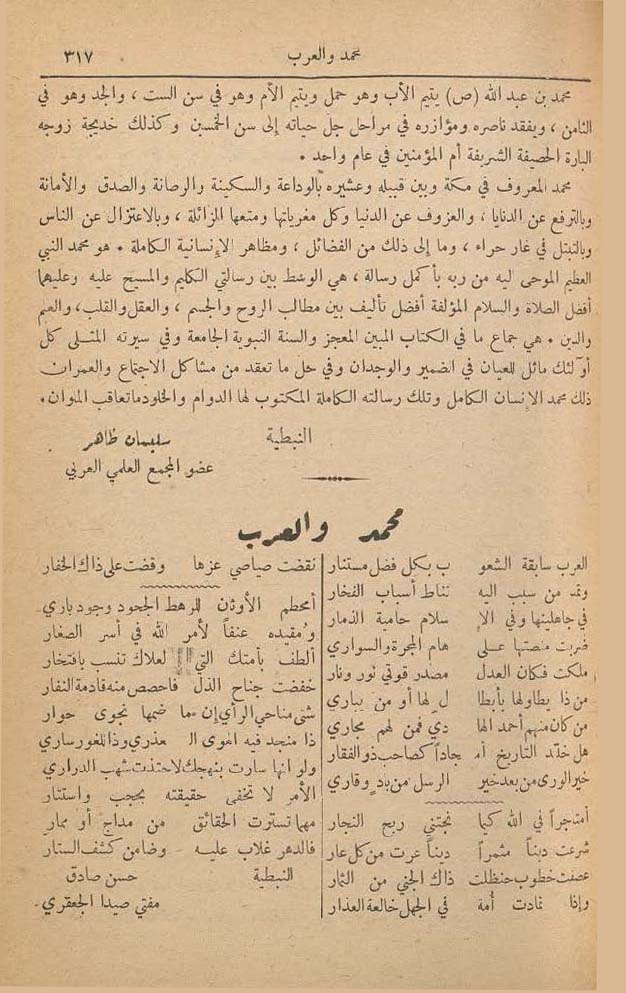 محمد والعرب ٣١٧
محمد بن عبد الله (ص) يتيم الأب وهو حمل ويتيم الأم وهو في سن الست ، والجد وهو في
الثامن ، ويفقد ناصره ومؤازره في مراحل جل حياته إلى سن الخمسين وكذلك خديجة زوجه
البارة الحصيفة الشريفة أم المؤمنين في عام واحد .
محمد المعروف في مكة وبين قبيله وعشيره بالوداعة والسكينة والرصانة والصدق والأمانة
وبالترفع عن الدنايا ، والعزوف عن الدنيا وكل مغرياتها ومتعها الزائلة ، وبالاعتزال عن الناس
وبالتبتل في غار حراء ، وما إلى ذلك من الفضائل ، ومظاهر الإنسانية الكاملة . هو محمد النبي
العظيم الموحى اليه من ربه بأكمل رسالة ، هي الوسط بين رسالتي الكليم والمسيح عليه وعليهما
أفضل الصلاة والسلام المؤلفة أفضل تأليف بين مطالب الروح والجسم ، والعقل والقلب ، والعلم
والدين . هي جماع ما في الكتاب المبين المعجز والسنة النبوية الجامعة وفي سيرته المثلى كل
أولئك ماثل للعيان في الضمير والوجدان وفي حل ما تعقد من مشاكل الاجتماع والعمران
ذلك محمد الإنسان الكامل وتلك رسالته الكاملة المكتوب لها الدوام والخلود ما تعاقب الملوان .
النبطية سليمان ظاهر
عضو المجمع العلمي العربي
محمد والعرب
العرب سابقة الشعو ب بكل فضل مستنار
وتمد من سبب اليه تناط أسباب الفخار
في جاهليتها وفي الإ سلام حامية الذمار
ضربت منصتها على هام المجرة والسواري
ملكت فكان العدل مصدر قوتي نور ونار
من ذا يطاولها بأبطا ل لها أو من يباري
من كان منهم أحمد الها دي فمن لهم مجاري
هل خلد التاريخ أمـ جاداً كصاحب ذو الفقار
خير الورى من بعد خير الرسل من باد وقاري
أمتجراً في الله كيما تجتني ربح النجار
شرعت ديناً مثمراً ديناً عرت من كل عار
عصفت خطوب حنظلت ذاك الجني من الثمار
وإذا تمادت أمة في الجهل خالعة العذار
نقضت صياصي عزها وقضت على ذاك الخفار
أمحطم الأوثان للرهط الجحود وجود باري
ومقيده عنفاً لأمر الله في أسر الصغار
ألطف بأمتك التي لعلاك تنسب بافتخار
خفضت جناح الذل فاحصص منه قادمة النفار
شتى مناحي الرأي إن ما ضمها نجوى حوار
ذا منجد فيه الهوى الـ عذري وذا للغور ساري
ولو انها سارت بنهجك لاحتذت شهب الدراري
الأمر لا تخفى حقيقته بحجب واستتار
مهما تسترت الحقائق من مداج أو ممار
فالدهر غلاب عليه وضامن كشف الستار
النبطية حسن صادق
مفتي صيدا الجعفري